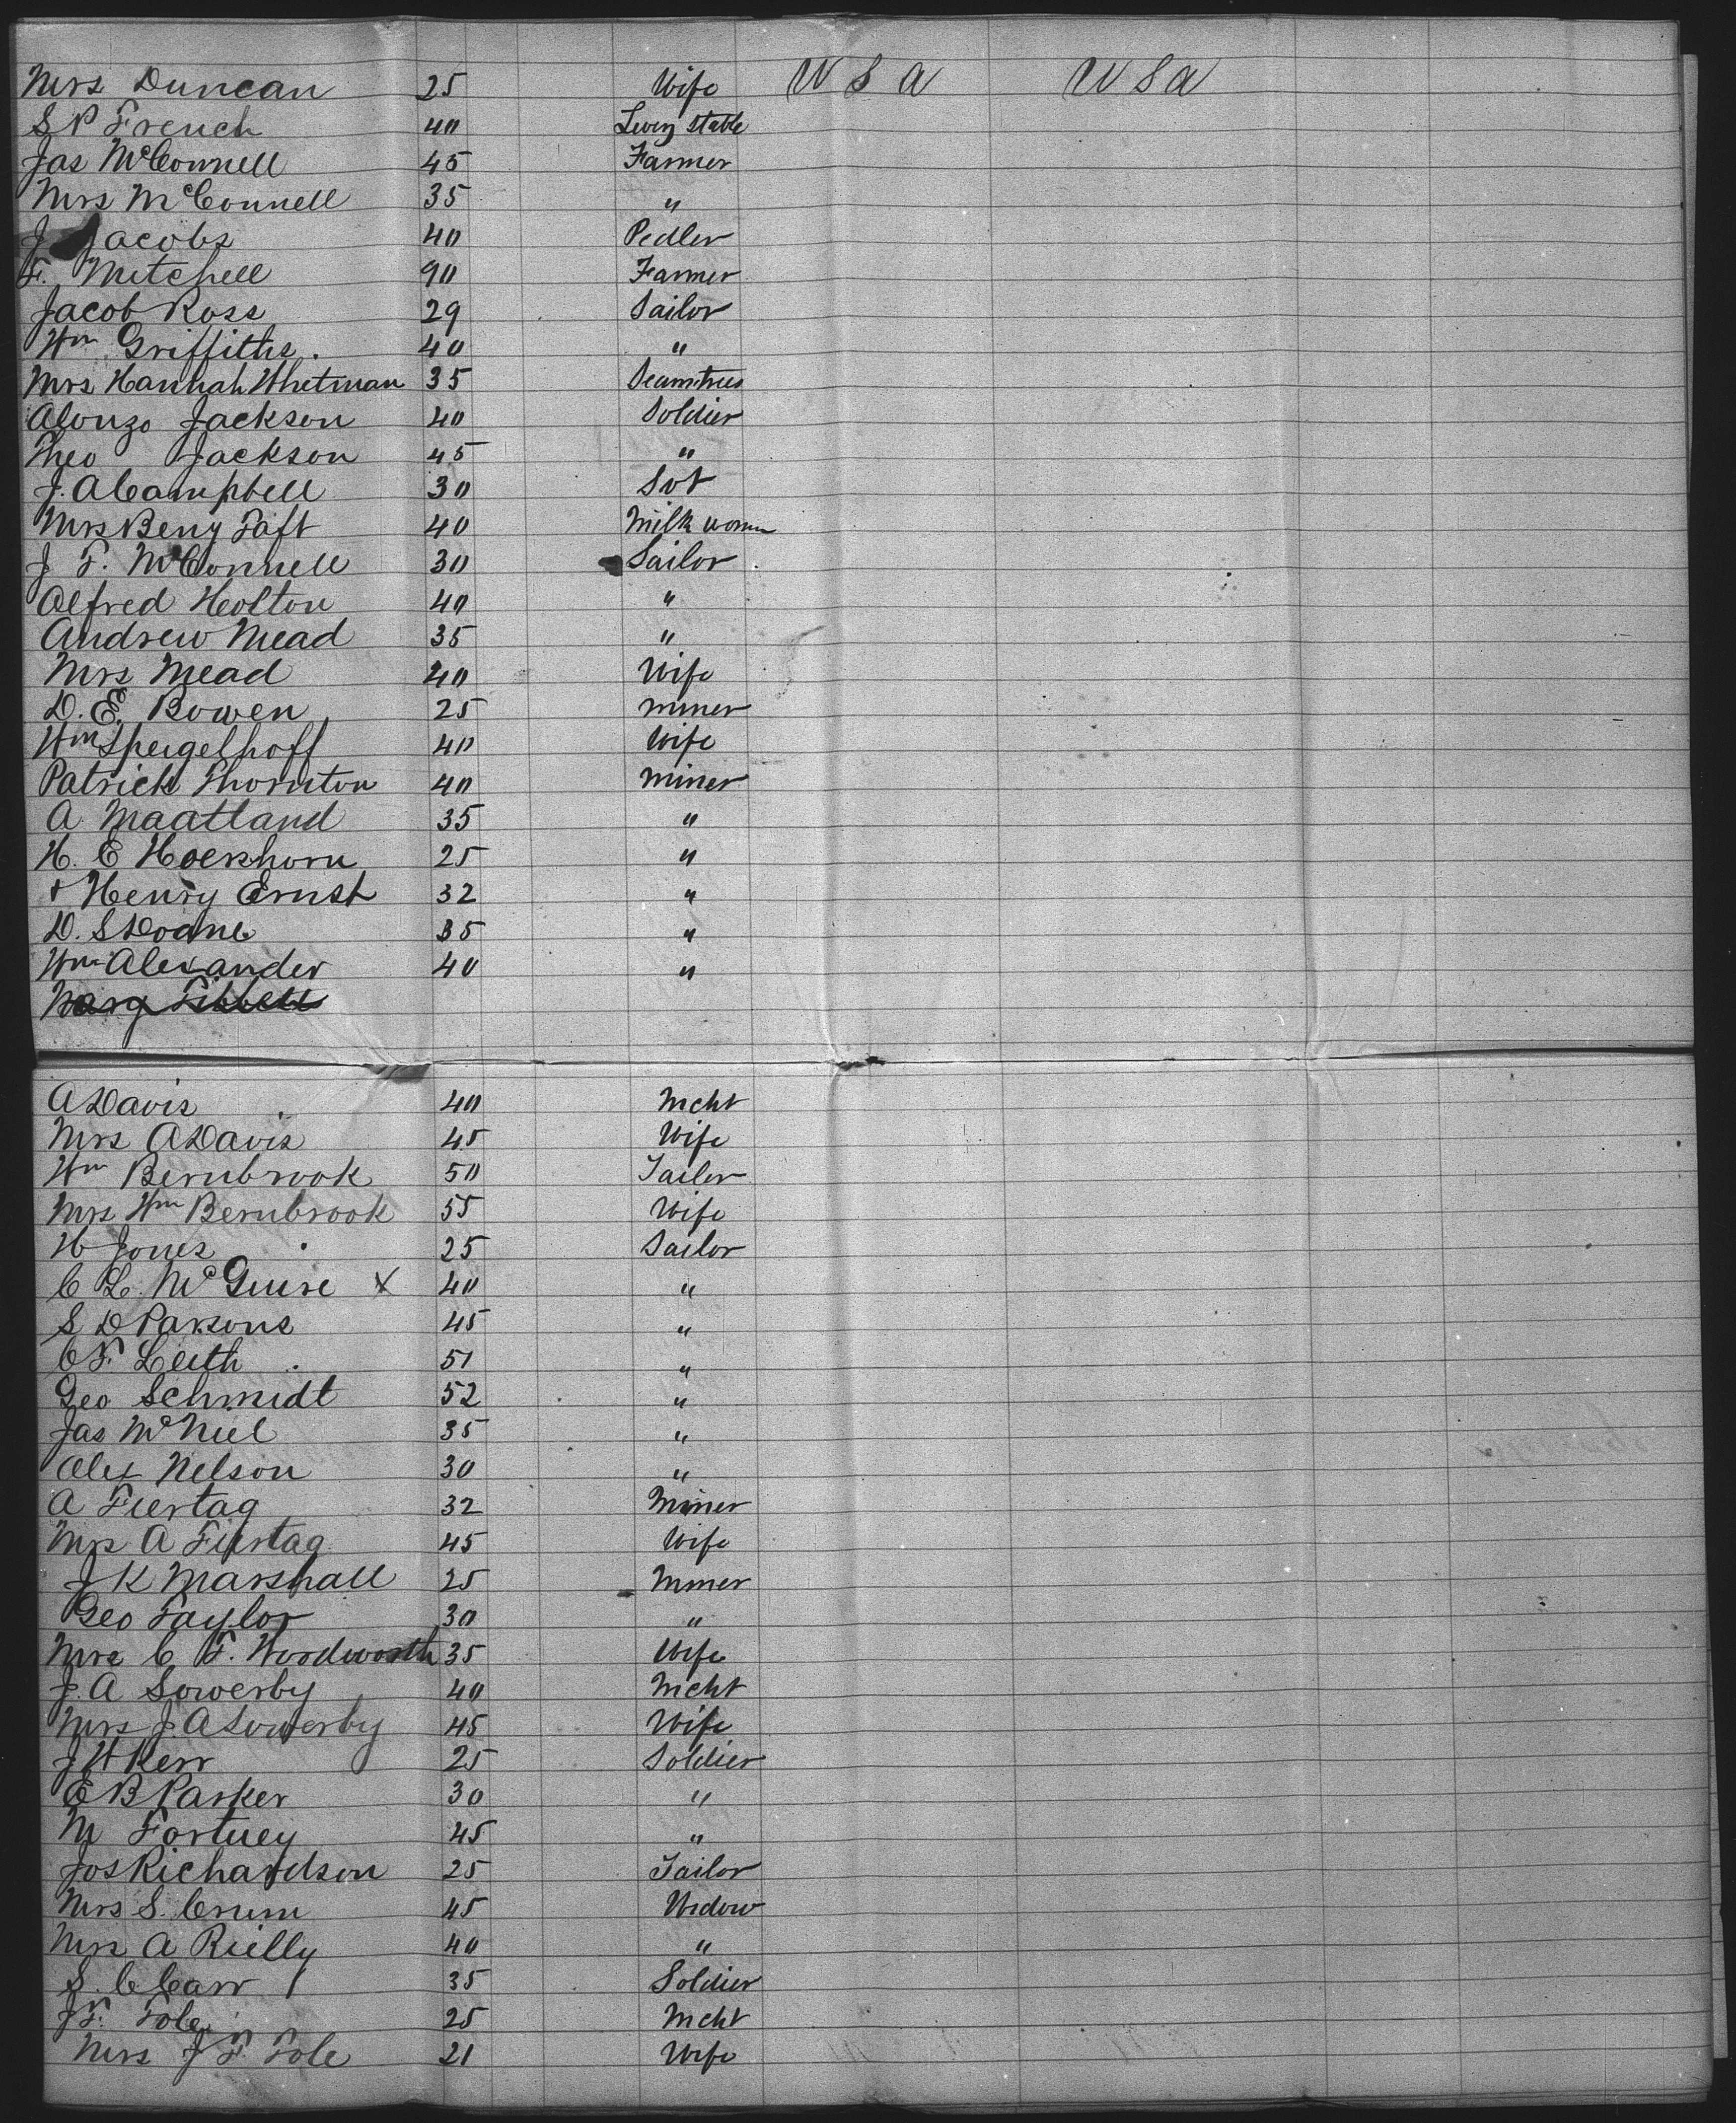 Mrs Duncan 25 Wife U S A U S A
S P French 40 Livery Stable
Jas McConnell 45 Farmer
Mrs McConnell 35 "
J Jacobs 40 Pedler
F. Mitchell 90 Farmer
Jacob Ross 29 Sailor
Wm Griffiths. 40 "
Mrs Hannah Whetman 35 Seamtres
Alonzo Jackson 40 Soldier
Theo Jackson 45 "
J. A Campbell 30 Sot
Mrs Benj Taft 40 Milk woman
J F. McConnell 30 Sailor
Alfred Holton 40 "
Andrew Mead 35 "
Mrs Mead 40 Wife
D. E. Bowen 25 miner
Wm Speigelhoff 40 Wife
Patrick Thornton 40 miner
A Maatland 35 "
H. E Hoekhorn 25 "
+ Henry Ernst 32 "
D. S Doane 35 "
Wm Alexander 40 "
A Davis 40 Mcht
Mrs A Davis 45 Wife
Wm Bernbrook 50 Tailor
Mrs Wm Bernbrook 55 Wife
H Jones 25 Sailor
C L. McGuire X 40 "
S D Parsons 45 "
C F. Leith 51 "
Geo Schmidt 52 "
Jas McNiel 35 "
Alex Nelson 30 "
A Fiertag 32 Miner
Mrs A Fiertag 45 Wife
J K Marshall 25 Miner
Geo Taylor 30 "
Mrs C F. Woodworth 35 Wife
J. A Sowerby 40 Mcht
Mrs J. A Sowerby 45 Wife
J W Kerr 25 Soldier
E B Parker 30 "
M Fortney 45 "
Jos Richardson 25 Tailor
Mrs S. Crum 45 Widow
Mrs A Rielly 40 "
S. C. Carr 35 Soldier
J F. Tole 25 Mcht
Mrs J F. Tole 21 Wife